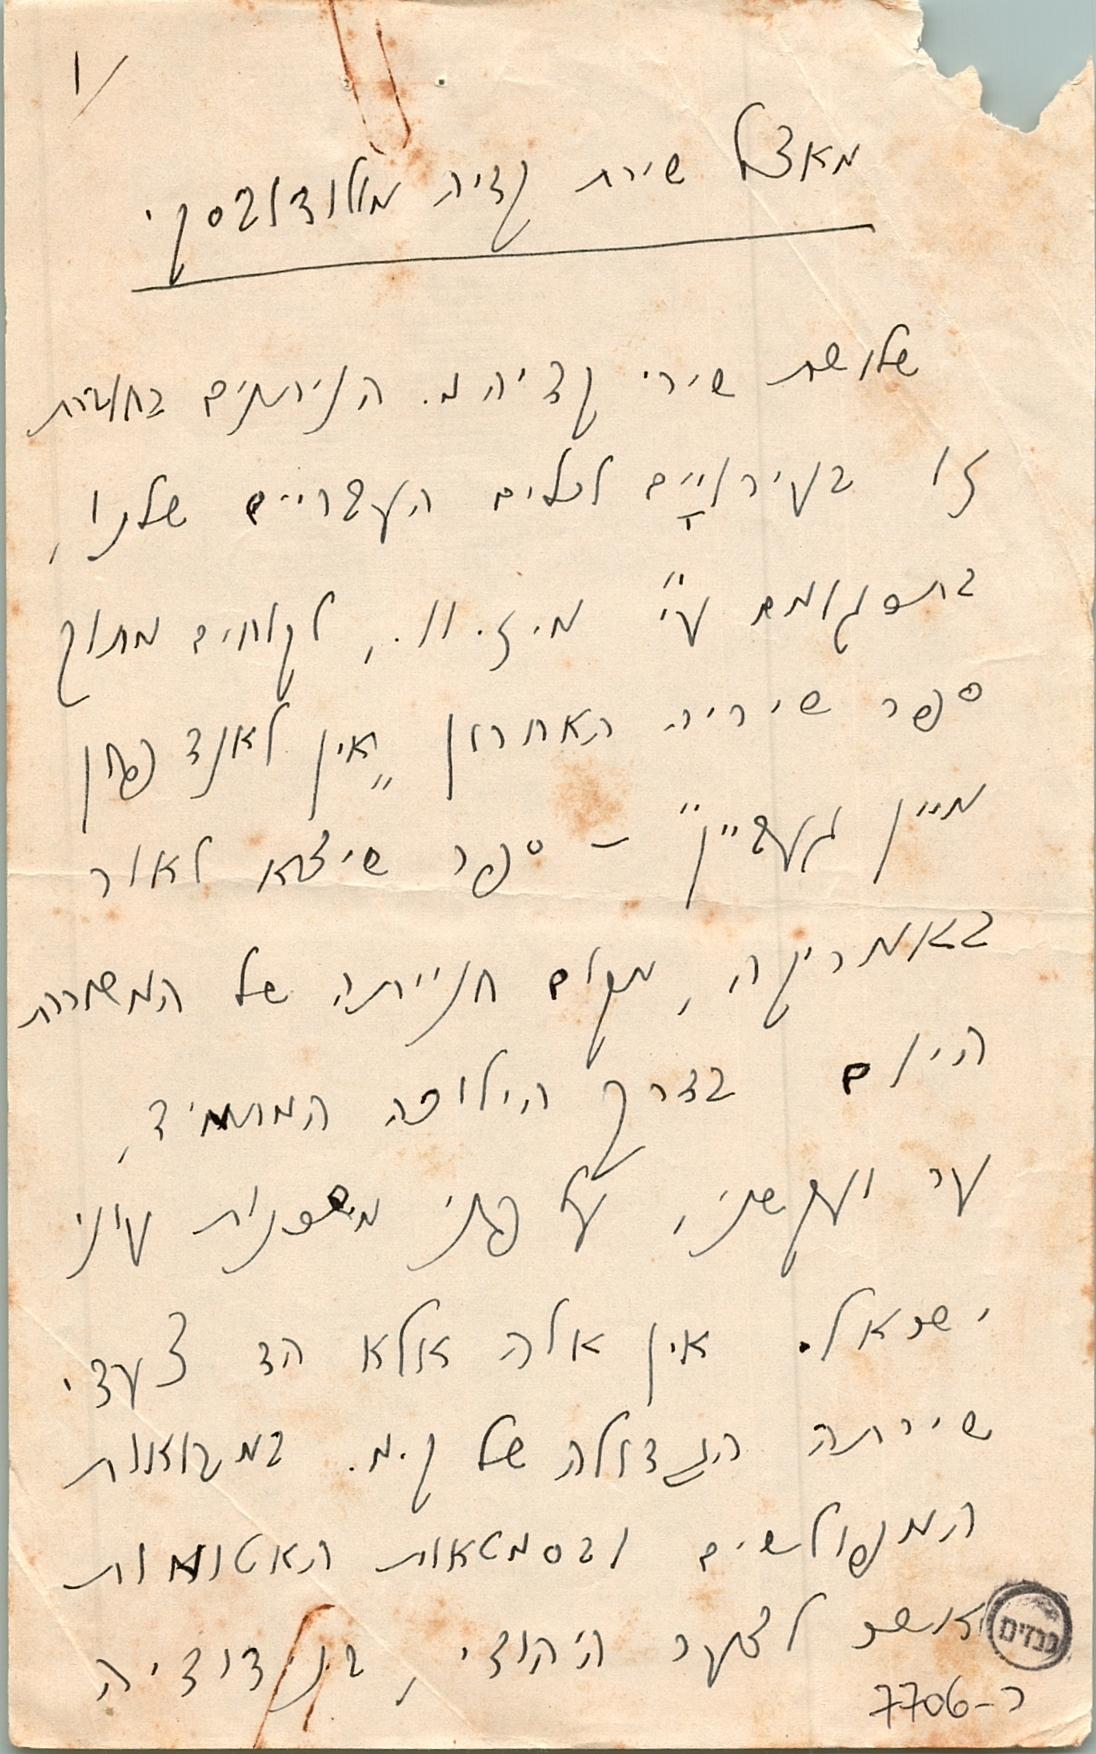 1/
מאצל שירת קדיה מולודובסקי
שלושת שירי קדיה מ. הניתנים בחוברת
זו בעירויָים לכלים העבריים שלנו,
בתרגומם ע"י מ.ז.וו., לקוחים מתוך
ספר שיריה האחרון „אין לאנד פון
מיין געביין" – ספר שיצא לאור
באמריקה, מקום חנייתה של המשוררת
היום בדרך הילוכה המתמיד,
ער ועקשני, על פני משכנות עוני
ישראל. אין אלה אלא הד צעדי
שירתה הגדולה של ק.מ. במבואות
המפולשים ובסמטאות האטומות
אשר לצער היהודי, בנדודיה
גנזים
כ-7706